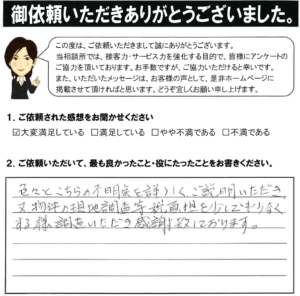 御依頼いただきありがとうございました。
この度は、ご依頼いただきまして誠にありがとうございます。
当相談所では、接客力・サービス力を強化する目的で、皆様にアンケートの
ご協力を頂いております。お手数ですが、ご協力いただけると幸いです。
また、いただいたメッセージは、お客様の声として、是非ホームページに
掲載させて頂ければと思います。どうぞ宜しくお願い申し上げます。
1. ご依頼された感想をお聞かせください
☑大変満足している □満足している □やや不満である □不満である
2. ご依頼いただいて、最も良かったこと・役にたったことをお書きください。
色々とこちらの不明点を詳しくご説明いただき
又物件の現地調査等税負担を少しでも少なく
する様調査いただき感謝致しております。